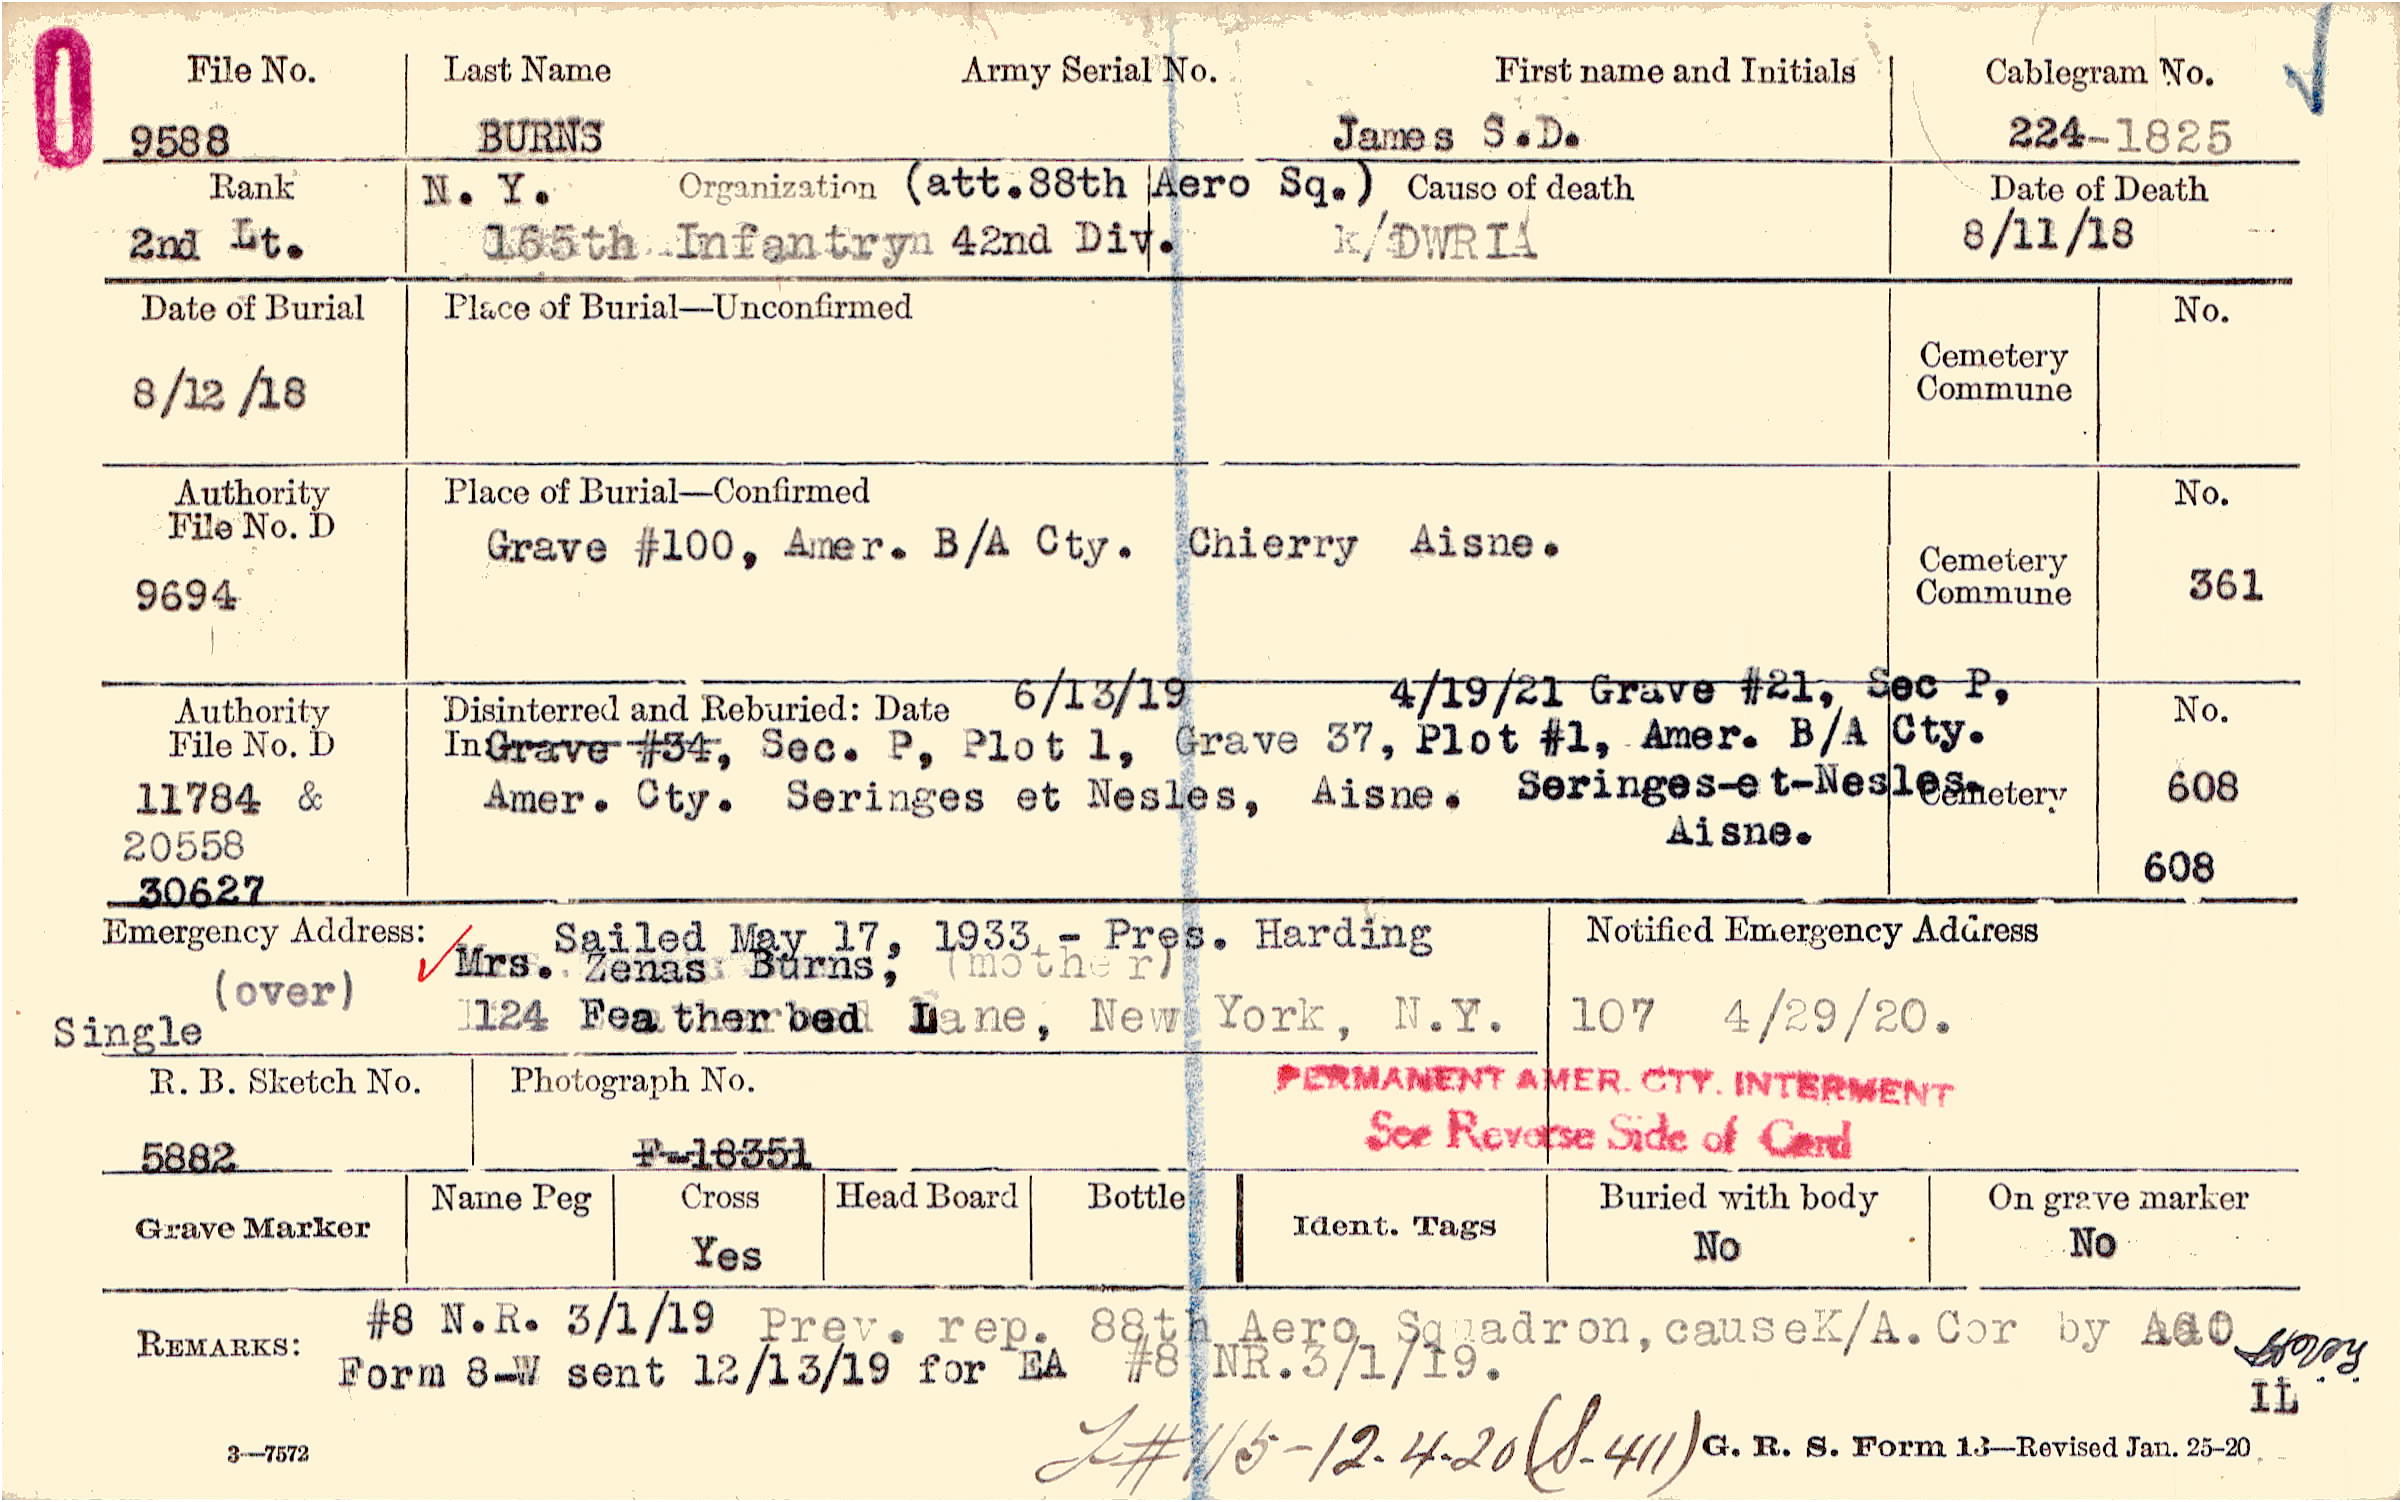 File No. Last Name Army Serial No. First name and Initials Cablegram No.
9588 BURNS James S.D. 224-1825
Rank N. Y. Organization (att.88th Aero Sq.) Cause of death Date of Death
2nd Lt. 165th Infantry 42nd Div. k/DWRIA 8/11/18
Date of Burial Place of Burial—Unconfirmed No.
Cemetery
Commune
8/12/18
Authority Place of Burial—Confirmed No.
File No. D
Grave #100, Amer. B/A Cty. Chierry Aisne.
Cemetery
9694 Commune 361
6/13/19 4/19/21 Grave #21, Sec P,
Authority Disinterred and Reburied: Date No.
File No. D In Grave #34, Sec. P, Plot 1, Grave 37, Plot #1, Amer. B/A Cty.
11784 & Amer. Cty. Seringes et Nesles, Aisne. Seringes-et-Nesles. Cemetery 608
20558 Aisne.
30627 608
Emergency Address: Sailed May 17, 1933 - Pres. Harding Notified Emergency Address
Mrs. Zenas Burns, (mother)
(over)
124 Featherbed Lane, New York, N.Y. 107 4/29/20.
Single
R. B. Sketch No. Photograph No. PERMANENT AMER. CTY. INTERMENT
See Reverse Side of Card
5882 F-18351
Grave Marker Name Peg Cross Head Board Bottle Ident. Tags Buried with body On grave marker
Yes No No
REMARKS: #8 N.R. 3/1/19 Prev. rep. 88th Aero Squadron, cause K/A. Cor by AGO
Form 8-W sent 12/13/19 for EA #8 NR.3/1/19.
IL
L#115-12-4-20 (S-411)
3—7572 G. R. S. Form 13—Revised Jan. 25-20